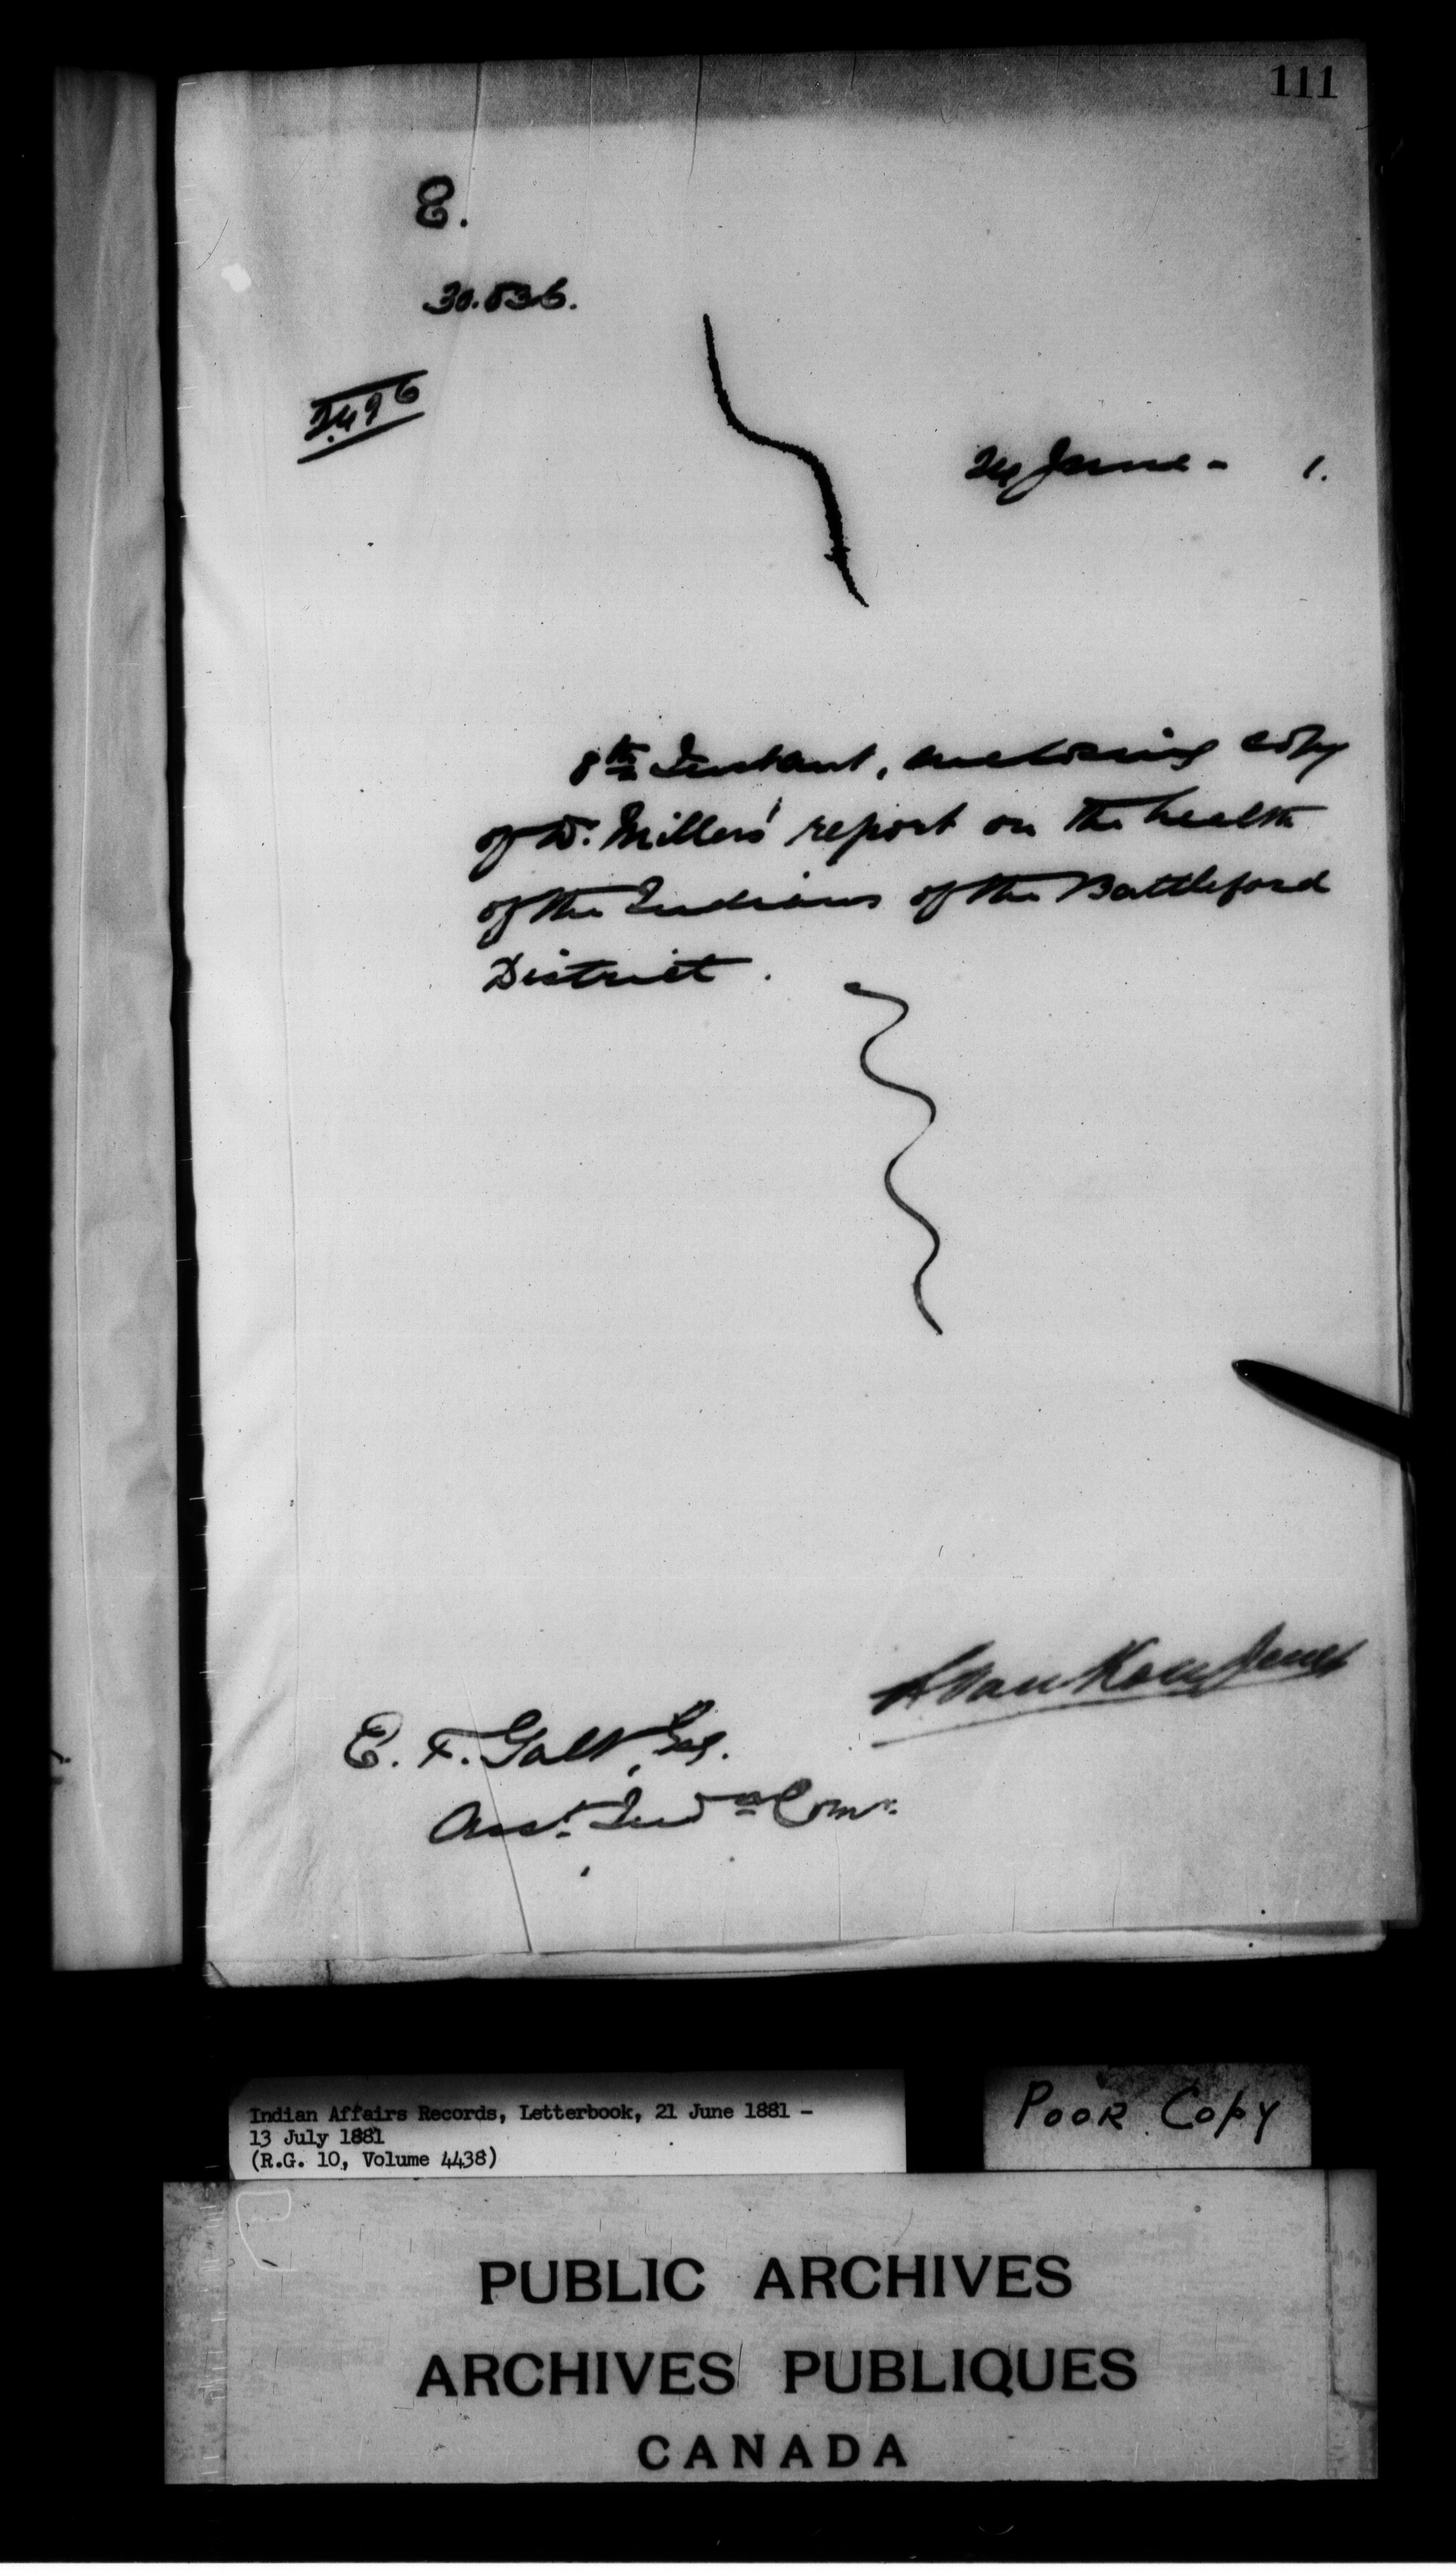 111
E.
30.836.
2496
24 June - 1.
8th Instant, enclosing copy
of Dr. Millers' report on the health
of the Indians of the Battleford
District.
E. T. Galt, Esq.
Asst. Ind'n Comr.
Indian Affairs Records, Letterbook, 21 June 1881 -
13 July 1881
(R.G. 10, Volume 4438)
POOR COPY
PUBLIC ARCHIVES
ARCHIVES PUBLIQUES
CANADA